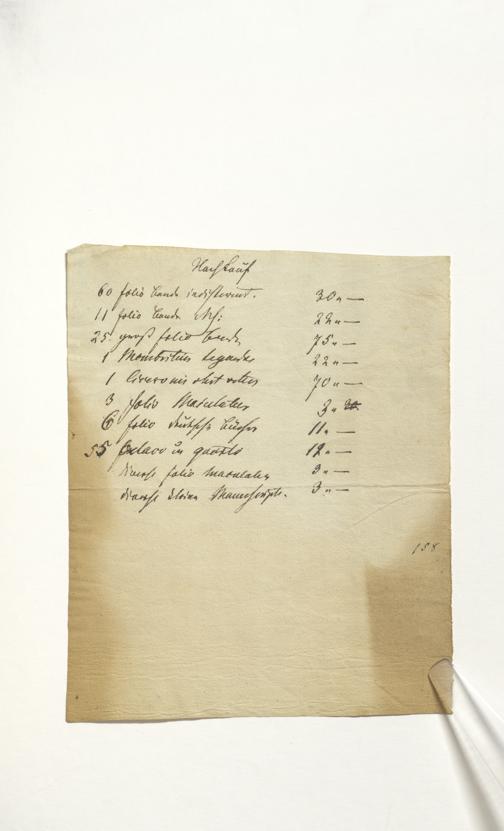 Nachkauf
60 folio bände indifferent. 30 „ —
11 folio bände Mß: 22 „ —
25 groß folio bände 75 „ —
1 Mombritius Legendae 22 „ —
1 Ciceronis 70 „ —
3 folio Maculatur 3 „
6 folio deutsche bücher 11 „ —
55 octavo u quarto 12 „ —
diverse folio maculatur 3 „ —
diverse kleine Manuscripte. 3 „ —
158